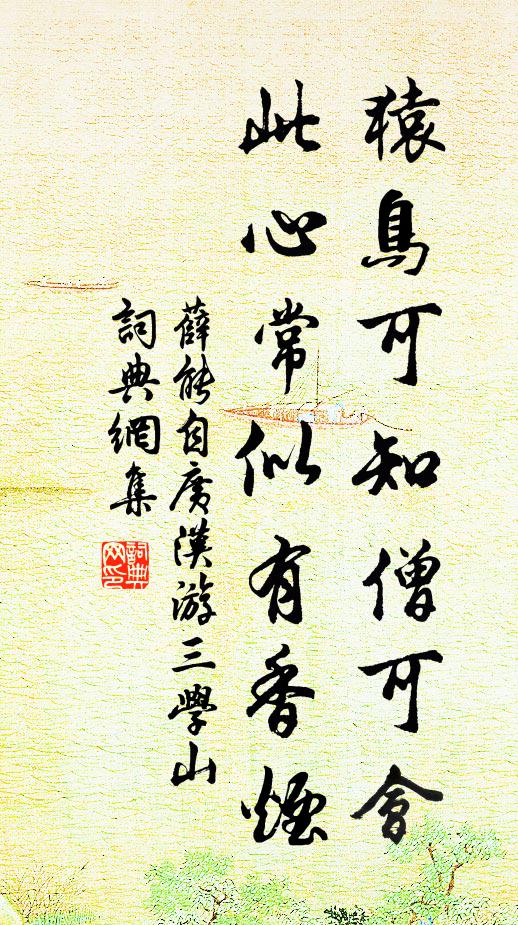 猿鳥可知僧可會
此心常似有香煙
薛能自廣漢游三學山
詞典網集
詞典網印